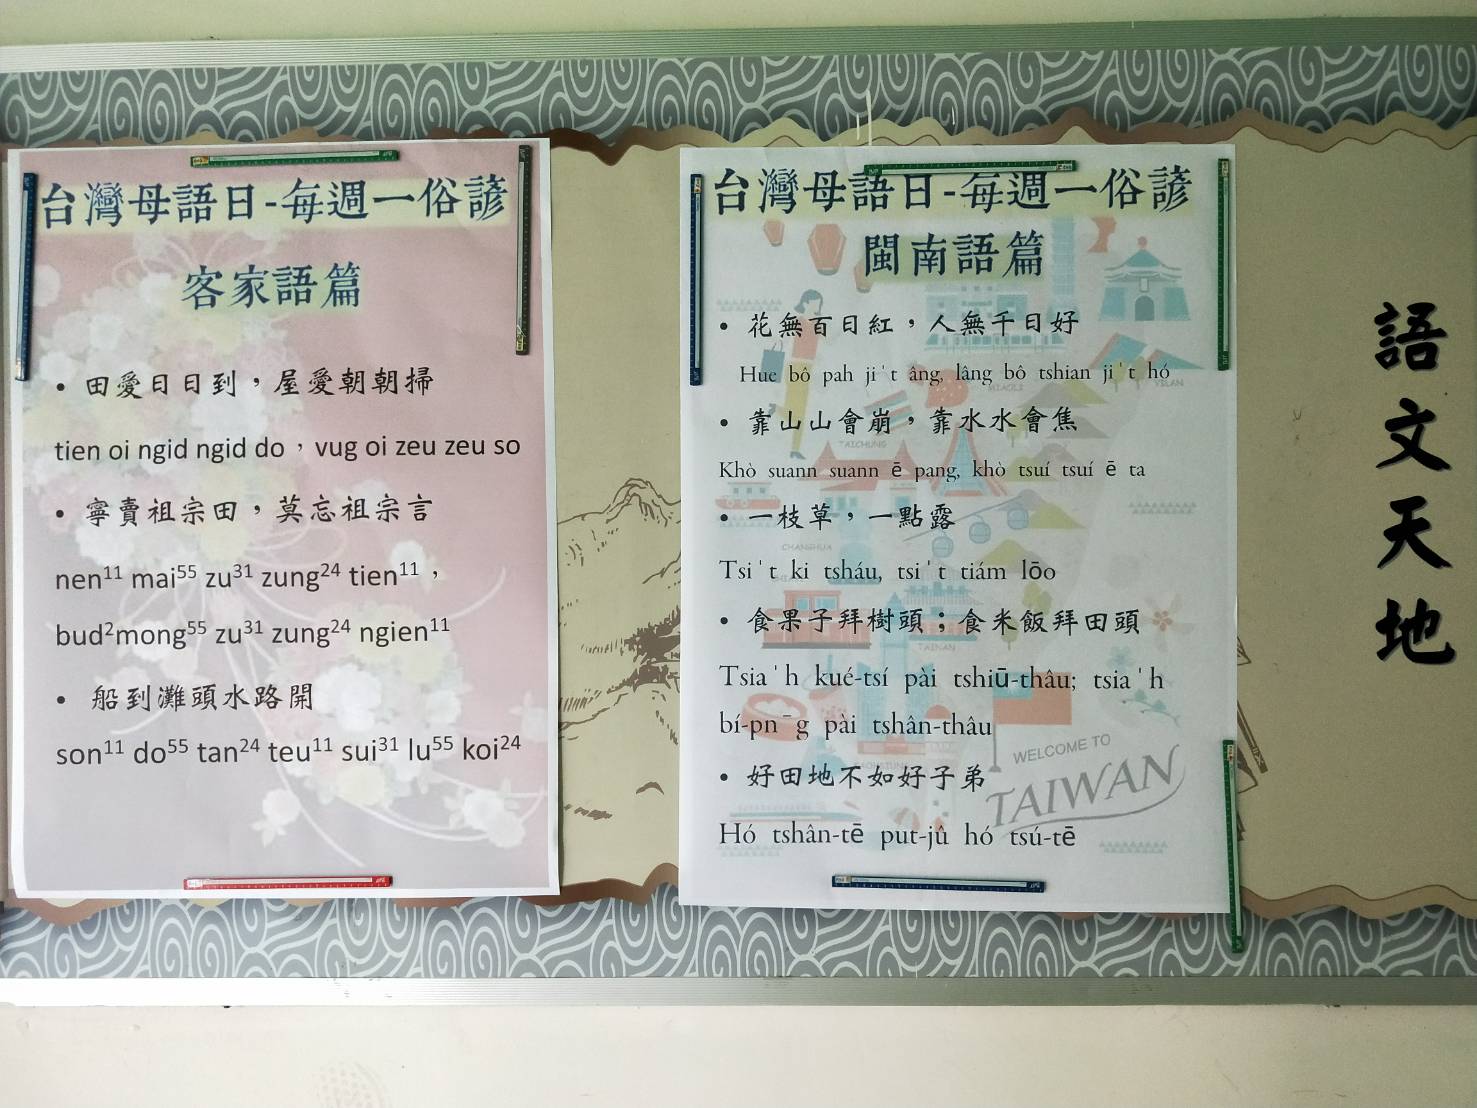 台灣母語日-每週一俗諺
客家語篇
• 田愛日日到，屋愛朝朝掃
tien oi ngid ngid do，vug oi zeu zeu so
• 寧賣祖宗田，莫忘祖宗言
nen¹¹ mai⁵⁵ zu³¹ zung²⁴ tien¹¹，
bud²mong⁵⁵ zu³¹ zung²⁴ ngien¹¹
• 船到灘頭水路開
son¹¹ do⁵⁵ tan²⁴ teu¹¹ sui³¹ lu⁵⁵ koi²⁴
台灣母語日-每週一俗諺
閩南語篇
• 花無百日紅，人無千日好
Hue bô pah ji̍t âng, lâng bô tshian ji̍t hó
• 靠山山會崩，靠水水會焦
Khò suann suann ē pang, khò tsuí tsuí ē ta
• 一枝草，一點露
Tsi̍t ki tsháu, tsi̍t tiám lōo
• 食果子拜樹頭；食米飯拜田頭
Tsia̍h kué-tsí pài tshiū-thâu; tsia̍h
bí-pn̄g pài tshân-thâu
• 好田地不如好子弟
Hó tshân-tē put-jû hó tsú-tē
TAICHUNG
MIAOLI
YILAN
CHANGHUA
TAINAN
WELCOME TO
TAIWAN
語文天地